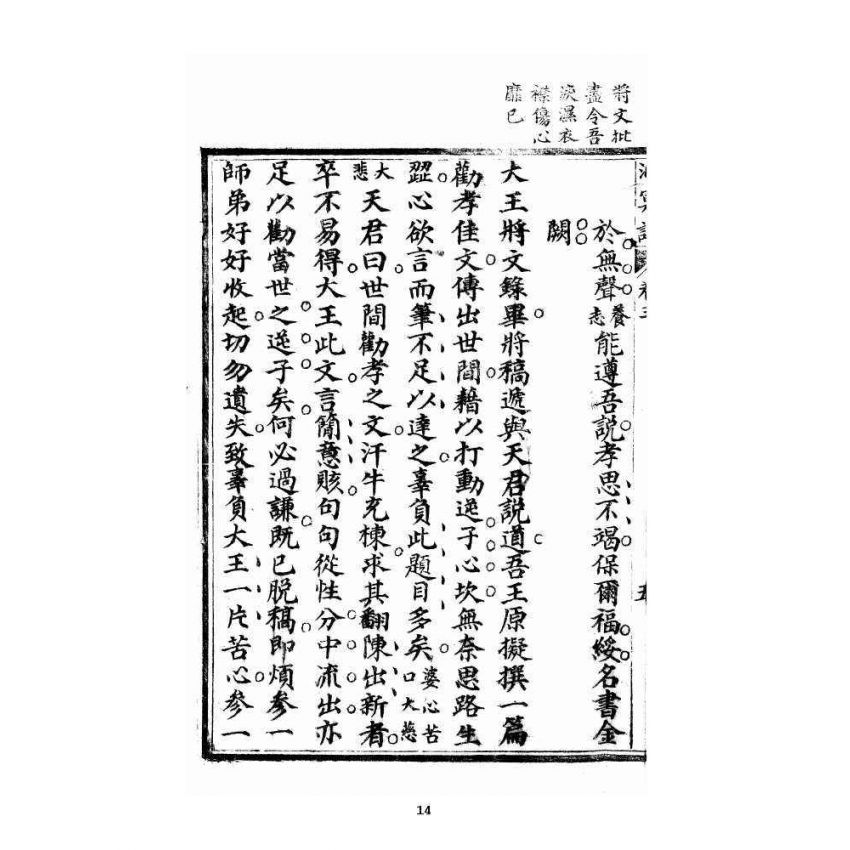 將文批
盡令吾
淚濕衣
襟傷心
靡已
於無聲養志能遵吾說孝思不竭保爾福綏名書金
闕
大王將文錄畢將稿遞與天君說道吾王原擬撰一篇
勸孝佳文傳出世間藉以打動逆子心坎無奈思路生
澀心欲言而筆不足以達之辜負此題目多矣婆心苦口大慈
大悲天君曰世間勸孝之文汗牛充棟求其翻陳出新者
卒不易得大王此文言簡意賅句句從性分中流出亦
足以勸當世之逆子矣何必過謙既已脫稿即煩參一
師弟好好收起切勿遺失致辜負大王一片苦心參一
14